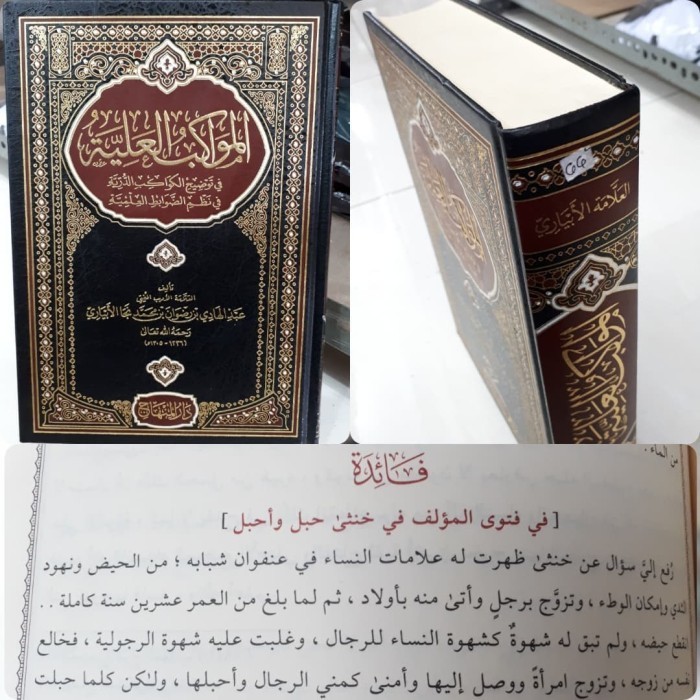 المواكب العلية
في توضيح الكواكب الدرية
في نظم الضوابط العلمية
تأليف
العلامة الأديب اللغوي
عبد الهادي بن رضوان بن محمد نجا الأبياري
رحمه الله تعالى
(١٢٣٦ - ١٣٠٥هـ)
دار المنهاج
العلامة الأبياري
المواكب العلية
من الماء .
فائدة
[ في فتوى المؤلف في خنثىٰ حبل وأحبل ]
رُفع إليَّ سؤال عن خنثىٰ ظهرت له علامات النساء في عنفوان شبابه ؛ من الحيض ونهود
الثدي وإمكان الوطء ، وتزوَّج برجلٍ وأتىٰ منه بأولاد ، ثم لما بلغ من العمر عشرين سنة كاملة . .
انقطع حيضه ، ولم تبق له شهوةٌ كشهوة النساء للرجال ، وغلبت عليه شهوة الرجولية ، فخالع
نفسه من زوجه ، وتزوج امرأةً ووصل إليها وأمنىٰ كمني الرجال وأحبلها ، ولـٰكن كلما حبلت